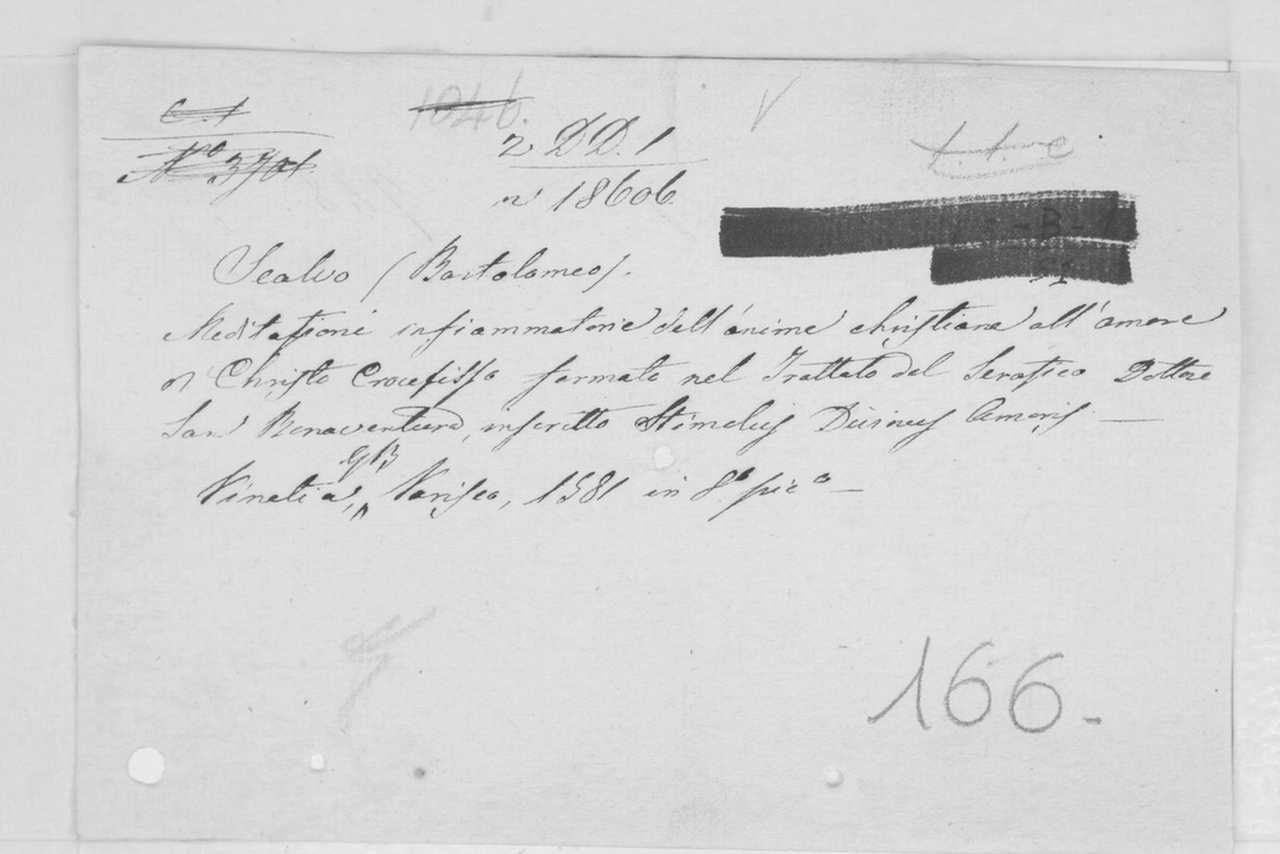 C. 1
Nº 3701.
1046.
2 DD. 1
nº 18606
Scalvo (Bartolomeo).
Meditationi infiammatorie dell'anime christiane all'amore
di Christo Crocefisso formato nel Trattato del Serafico Dottore
San Bonaventura, inscritto Stimulus Divinus Amoris —
Vinetia, GB Varisco, 1581 in 8º picº —
166.-